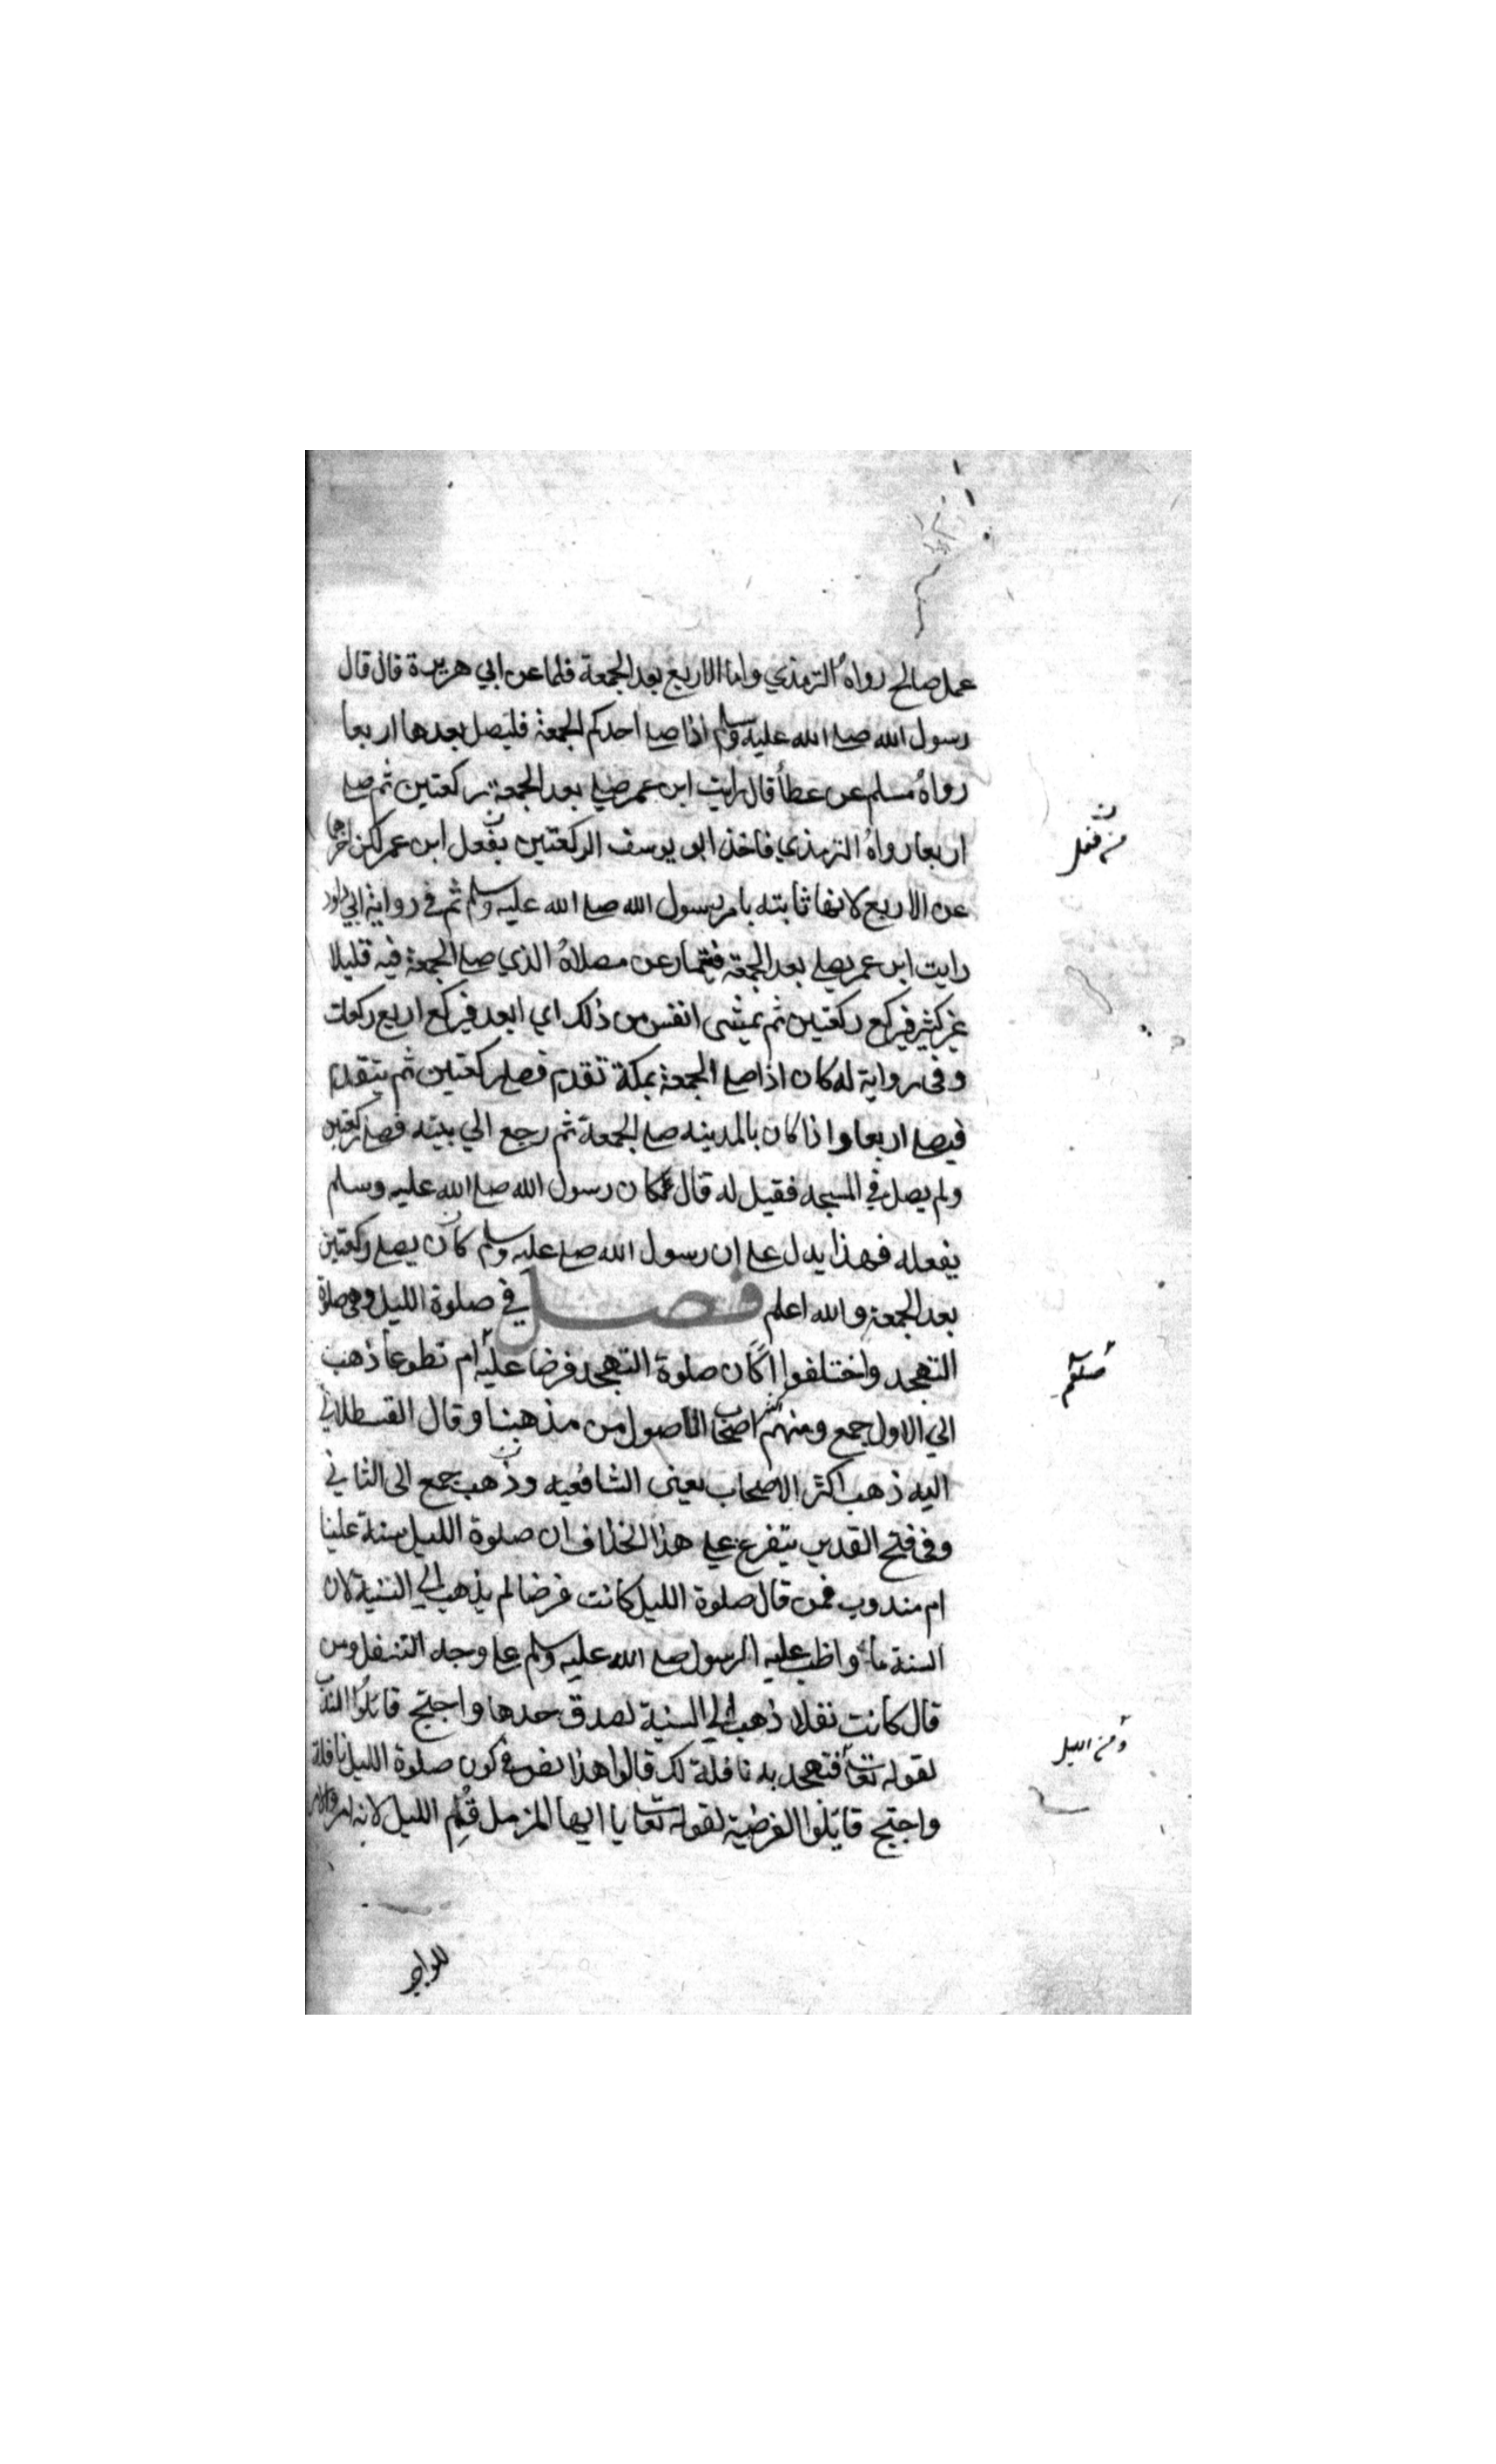 عمل صالح رواه الترمذي واما الاربع بعد الجمعة فلما عن ابي هريرة قال قال
رسول الله صلى الله عليه وسلم اذا صلى احدكم الجمعة فليصل بعدها اربعا
رواه مسلم عن عطأ قال رايت ابن عمر صلى بعد الجمعة ركعتين ثم صلى
اربعا رواه الترمذي فاخذ ابو يوسف الركعتين بفعل ابن عمر لكن اخرها
عن الاربع لانها ثابته بامر رسول الله صلى الله عليه وسلم ثم في رواية ابي داود
رايت ابن عمر يصلي بعد الجمعة فينماز عن مصلاه الذي صلى الجمعة فيه قليلا
غير كثير فيركع ركعتين ثم يمشى انفس من ذلك اي ابعد فيركع اربع ركعات
وفي رواية له كان اذا صلى الجمعة بمكة تقدم فصلى ركعتين ثم يتقدم
فيصلي اربعا واذا كان بالمدينه صلى الجمعة ثم رجع الي بيته فصلى ركعتين
ولم يصل في المسجد فقيل له قال كان رسول الله صلى الله عليه وسلم
يفعله فهذا يدل على ان رسول الله صلى عليه وسلم كان يصلي ركعتين
بعد الجمعة والله اعلم فصل في صلوة الليل وهي صلوة
التهجد واختلفوا اكان صلوة التهجد فرضا عليه ام تطوعا ذهب
الي الاول جمع ومنهم اصحاب الاصول من مذهبنا وقال القسطلاني
اليه ذهب اكثر الاصحاب يعني الشافعيه وذهب جمع الى الثاني
وفي فتح القدير يتفرع على هذا الخلاف ان صلوة الليل سنة علينا
ام مندوب فمن قال صلوة الليل كانت فرضا لم يذهب الي السنية لان
السنة ما واظب عليه الرسول صلى الله عليه وسلم على وجه التنفل ومن
قال كانت نفلا ذهب الي السنية لصدق حدها واحتج قائلوا الندب
لقوله تعالى فتهجد به نافلة لك قالوا هذا نص في كون صلوة الليل نافلة
واحتج قائلوا الفرضية لقوله تعالى يا ايها المزمل قم الليل لانه امر والامر
من فعل
ومن الليل
للوجوب